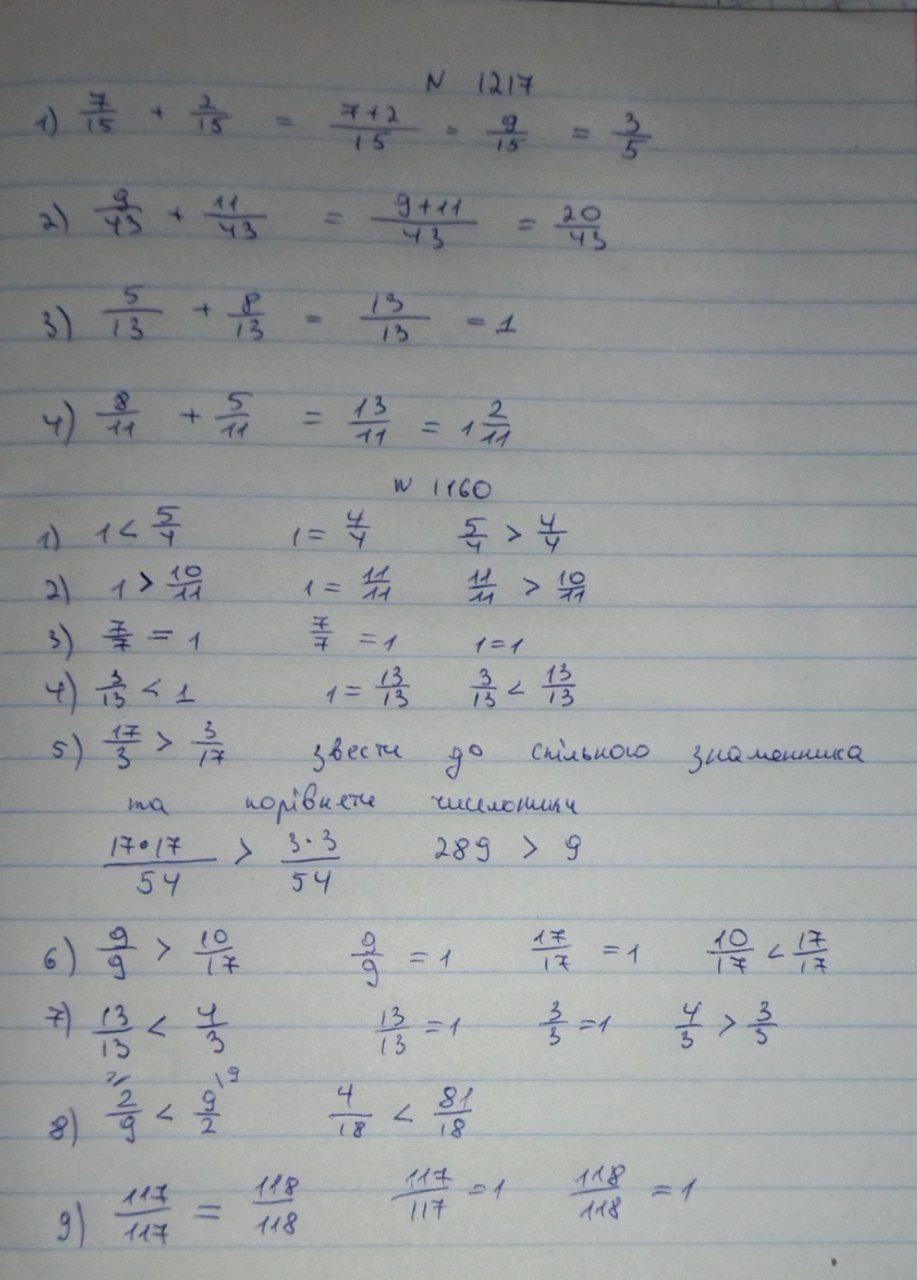 N 1217
1) 7/15 + 2/15 = 7+2/15 = 9/15 = 3/5
2) 9/43 + 11/43 = 9+11/43 = 20/43
3) 5/13 + 8/13 = 13/13 = 1
4) 8/11 + 5/11 = 13/11 = 1 2/11
N 1160
1) 1 < 5/4 1 = 4/4 5/4 > 4/4
2) 1 > 10/11 1 = 11/11 11/11 > 10/11
3) 7/7 = 1 7/7 = 1 1=1
4) 3/13 < 1 1 = 13/13 3/13 < 13/13
5) 17/3 > 3/17 звести до спільного знаменника
та порівняти чисельники
17·17/54 > 3·3/54 289 > 9
6) 9/9 > 10/17 9/9 = 1 17/17 = 1 10/17 < 17/17
7) 13/13 < 4/3 13/13 = 1 3/3 = 1 4/3 > 3/3
8) 2/9 < 9/2 \9 4/18 < 81/18
9) 117/117 = 118/118 117/117 = 1 118/118 = 1